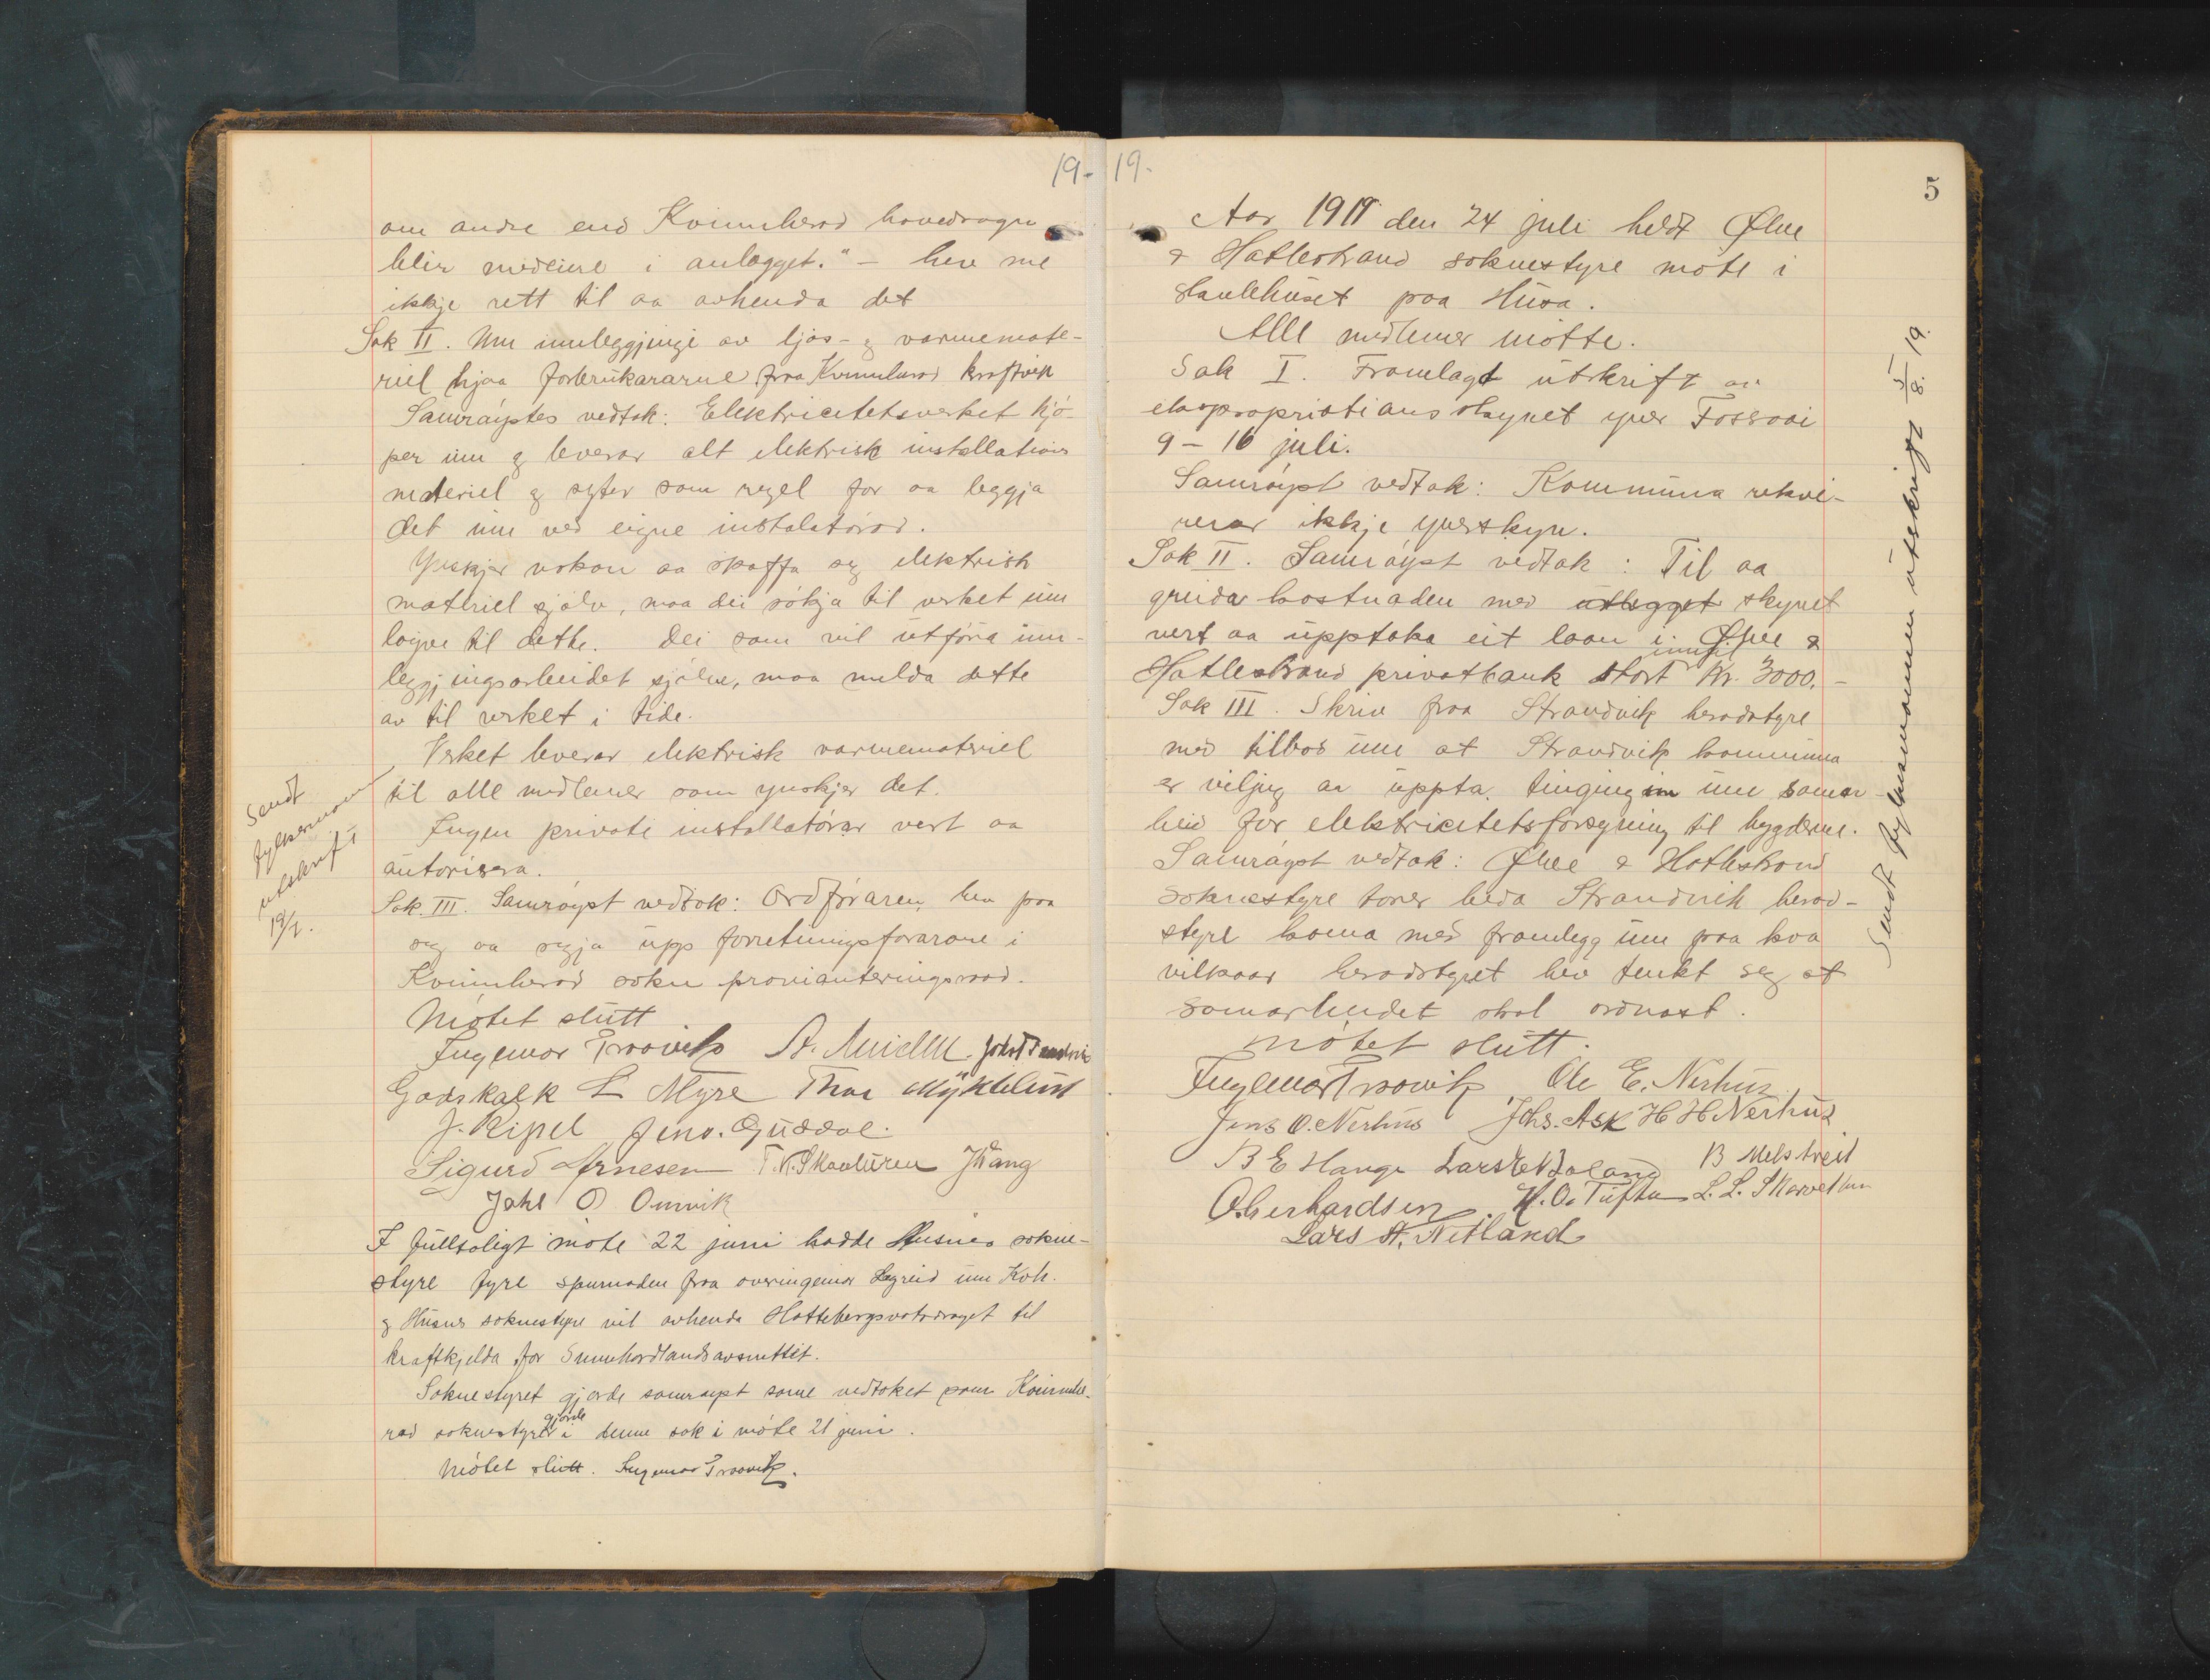 19-
om andre end Kvinnherad hovedsogn
blir medeiere i anlægget." - hev me
ikkje rett til aa avhenda det
Sak II. Um innleggjingi av ljos- og varmemate-
riel hjaa forbrukararne fraa Kvinnherad kraftverk
Samrøystes vedtak: Elektricitetsverket kjø-
per inn og leverar alt elektrisk installations
materiel og syter som regel for aa leggja
det inn ved eigne instalatørar.
Ynskjer nokon aa skaffa seg elektrisk
materiel sjølv, maa dei søkja til verket um
løyve til dette. Dei som vil utføra inn-
leggjingsarbeidet sjølve, maa melda dette
av til verket i tide.
Verket leverar elektrisk varmemateriel
til alle medlemer som ynskjer det.
Ingen private installatørar vert aa
autorisera.
Sak. III. Samrøyst vedtak: Ordføraren hev paa
seg aa segja upp forretningsførarane i
Kvinnherad sokn provianteringsraad.
Møtet slutt
Sendt
fylkesmannen
utskrift
19/7.
Ingemar Traavik A.
Godskalk L Myre Thor Myklebust
J. Ripel Jens. Guddal.
Sigurd Arnesen T. N. Skaaluren
Johs O Omvik
I fulltaligt møte 22 juni hadde Husnes sokne-
styre fyre spurnaden fraa overingeniør Legreid um Kvh.
og Husnes soknestyre vil avhenda Hattebergsvatsdraget til
kraftkjelda for Sunnhordlandsavsnittet.
Soknestyret gjorde samrøyst same vedtaket som Kvinnhe-
rad soknestyre gjorde i denne sak i møte 21 juni.
Møtet slutt. Ingemar Traavik.
19.
5
Aar 1919 den 24 juli heldt Ølve
& Hatlestrand soknestyre møte i
skulehuset paa Husa.
Alle medlemer møtte.
Sak I. Framlagt utskrift av
ekspropriations skynet yver Fossaai
9 - 16 juli.
Samrøyst vedtak: Kommuna rekvi-
rerar ikkje yverskyn.
Sak II. Samrøyst vedtak: Til aa
greida kostnaden med utlegget skynet
vert aa upptaka eit laan i Ølve &
Hatlestrand privatbank inntil stort kr. 3000.-
Sak III. Skriv fraa Strandvik heradstyre
med tilbod um at Strandvik kommuna
er viljug aa uppta tinging um samar-
beid for elektricitetsforsyning til bygderne.
Samrøyst vedtak: Ølve & Hatlestrand
soknestyre torer beda Strandvik herad-
styre koma med framlegg um paa kva
vilkaar heradstyret hev tenkt seg at
samarbeidet skal ordnast.
Møtet slutt.
Ingemar Traavik Ole E. Nerhus
Jens O. Nerhus Johs. Ask H H Nerhus
B E Hauge B Melstveit
O. Gerhardsen. H. O. Tufta L. L.
Lars A. Netland
Sendt fylkesmannen utskrift 5/8. 19.